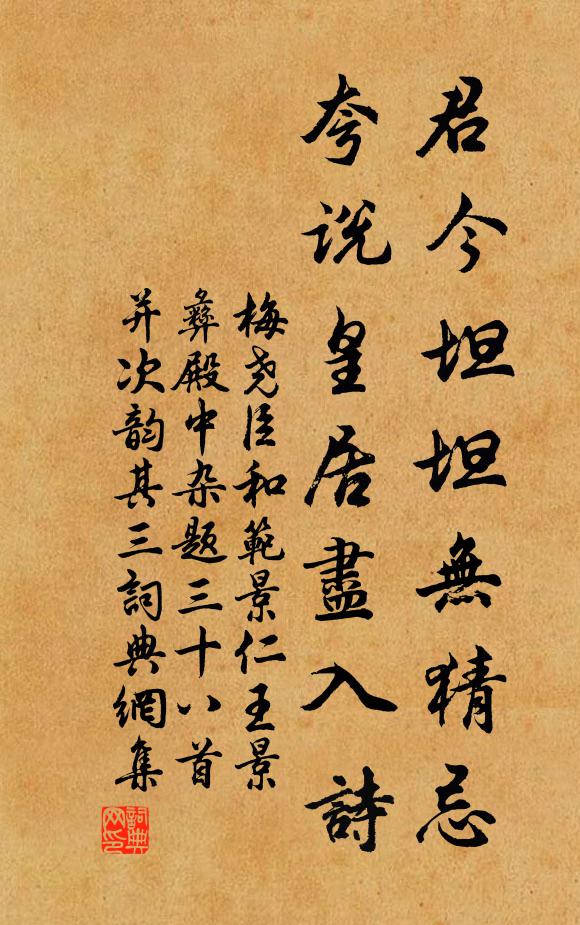 君今坦坦無猜忌
夸说皇居盡入詩
梅尧臣和範景仁王景
彝殿中杂题三十八首
并次韵其三詞典網集
詞典网印